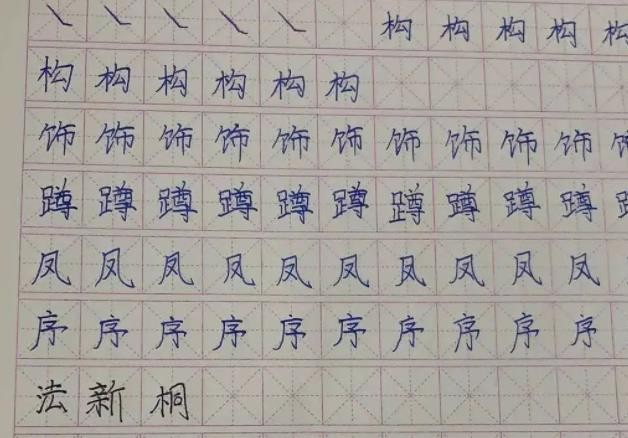 构 构 构 构 构
构 构 构 构 构 构
饰 饰 饰 饰 饰 饰 饰 饰 饰 饰 饰
蹲 蹲 蹲 蹲 蹲 蹲 蹲 蹲 蹲 蹲 蹲
凤 凤 凤 凤 凤 凤 凤 凤 凤 凤
序 序 序 序 序 序 序 序 序 序
法 新 桐